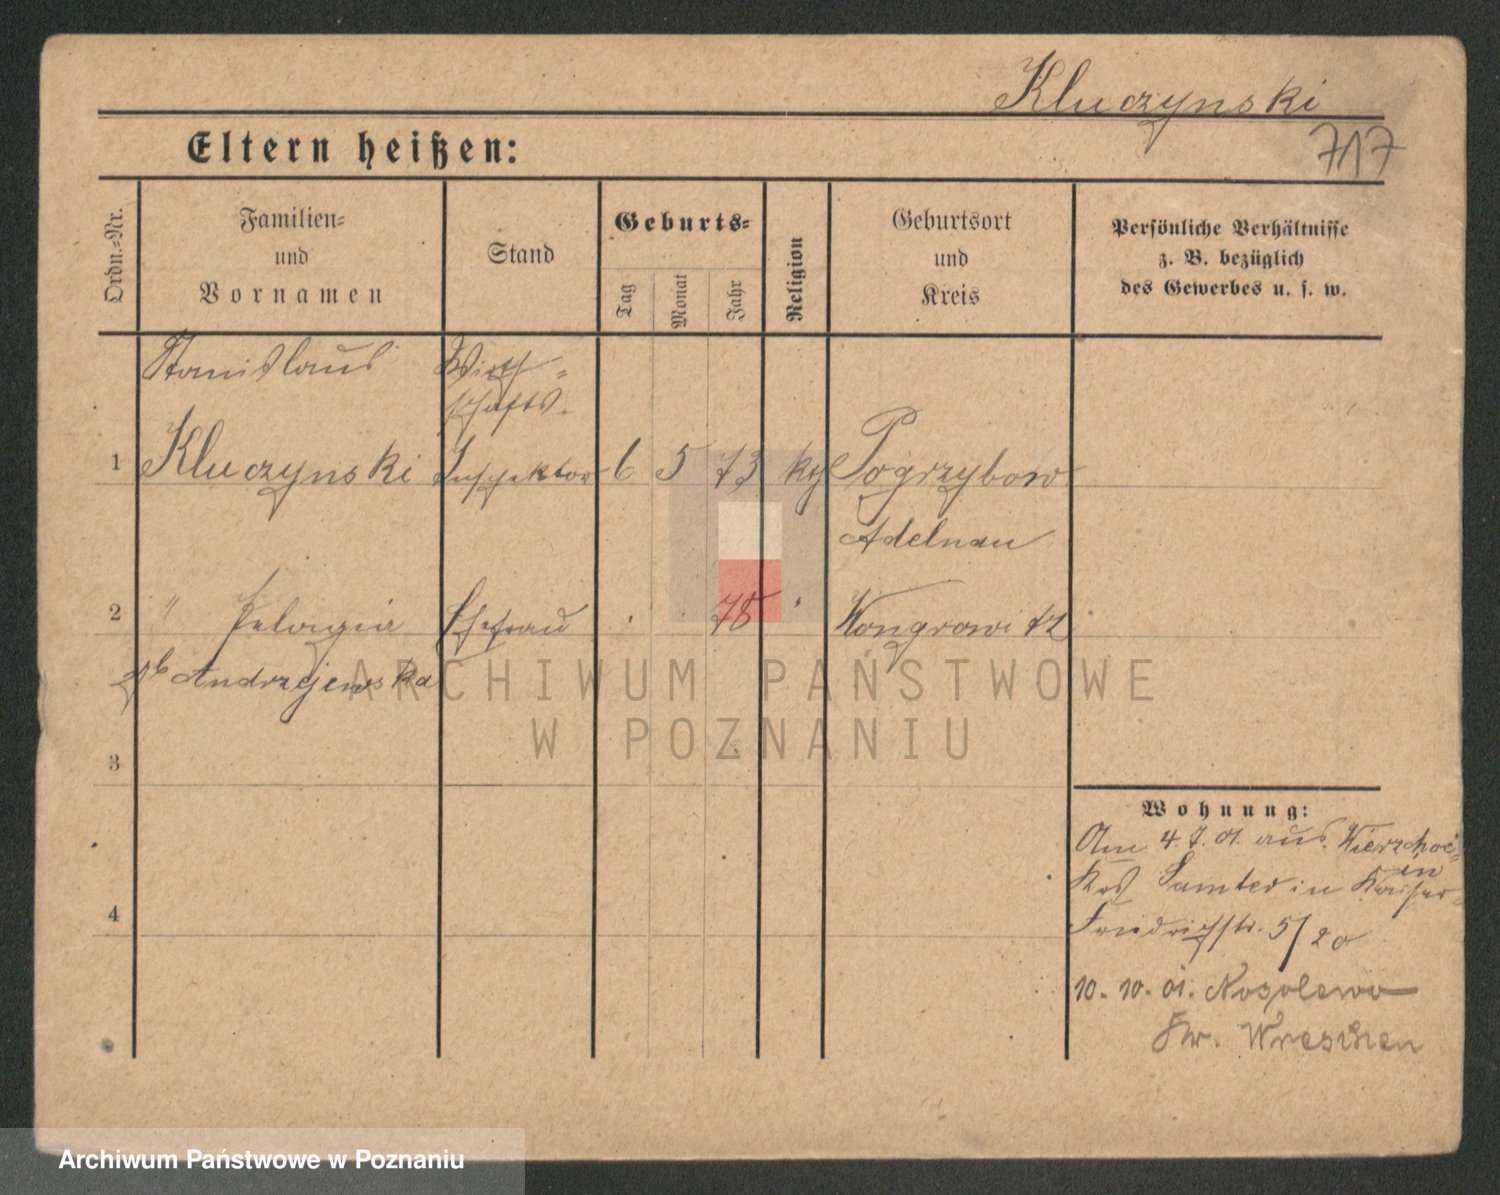 Kluczynski
717
Eltern heißen:
Ordn.=Nr.
Familien=
und
Vornamen
Stand
Geburts=
Tag
Monat
Jahr
Religion
Geburtsort
und
Kreis
Persönliche Verhältnisse
z. B. bezüglich
des Gewerbes u. s. w.
Stanislaus
Wirth=
schafts-
1 Kluczynski Inspektor 6 5 73 kth Pogrzybow
Adelnau
2 " Pelagia Ehefrau 78 " Wongrowitz
gb Andrzejewska
ARCHIWUM PAŃSTWOWE
W POZNANIU
3
Wohnung:
Am 4.7.01. aus Wierzchoc=
in
Krs Samter in Kaiser=
4
Friedrichstr. 5/20
10.10.01. Nozolewo
Kr. Wreschen
Archiwum Państwowe w Poznaniu